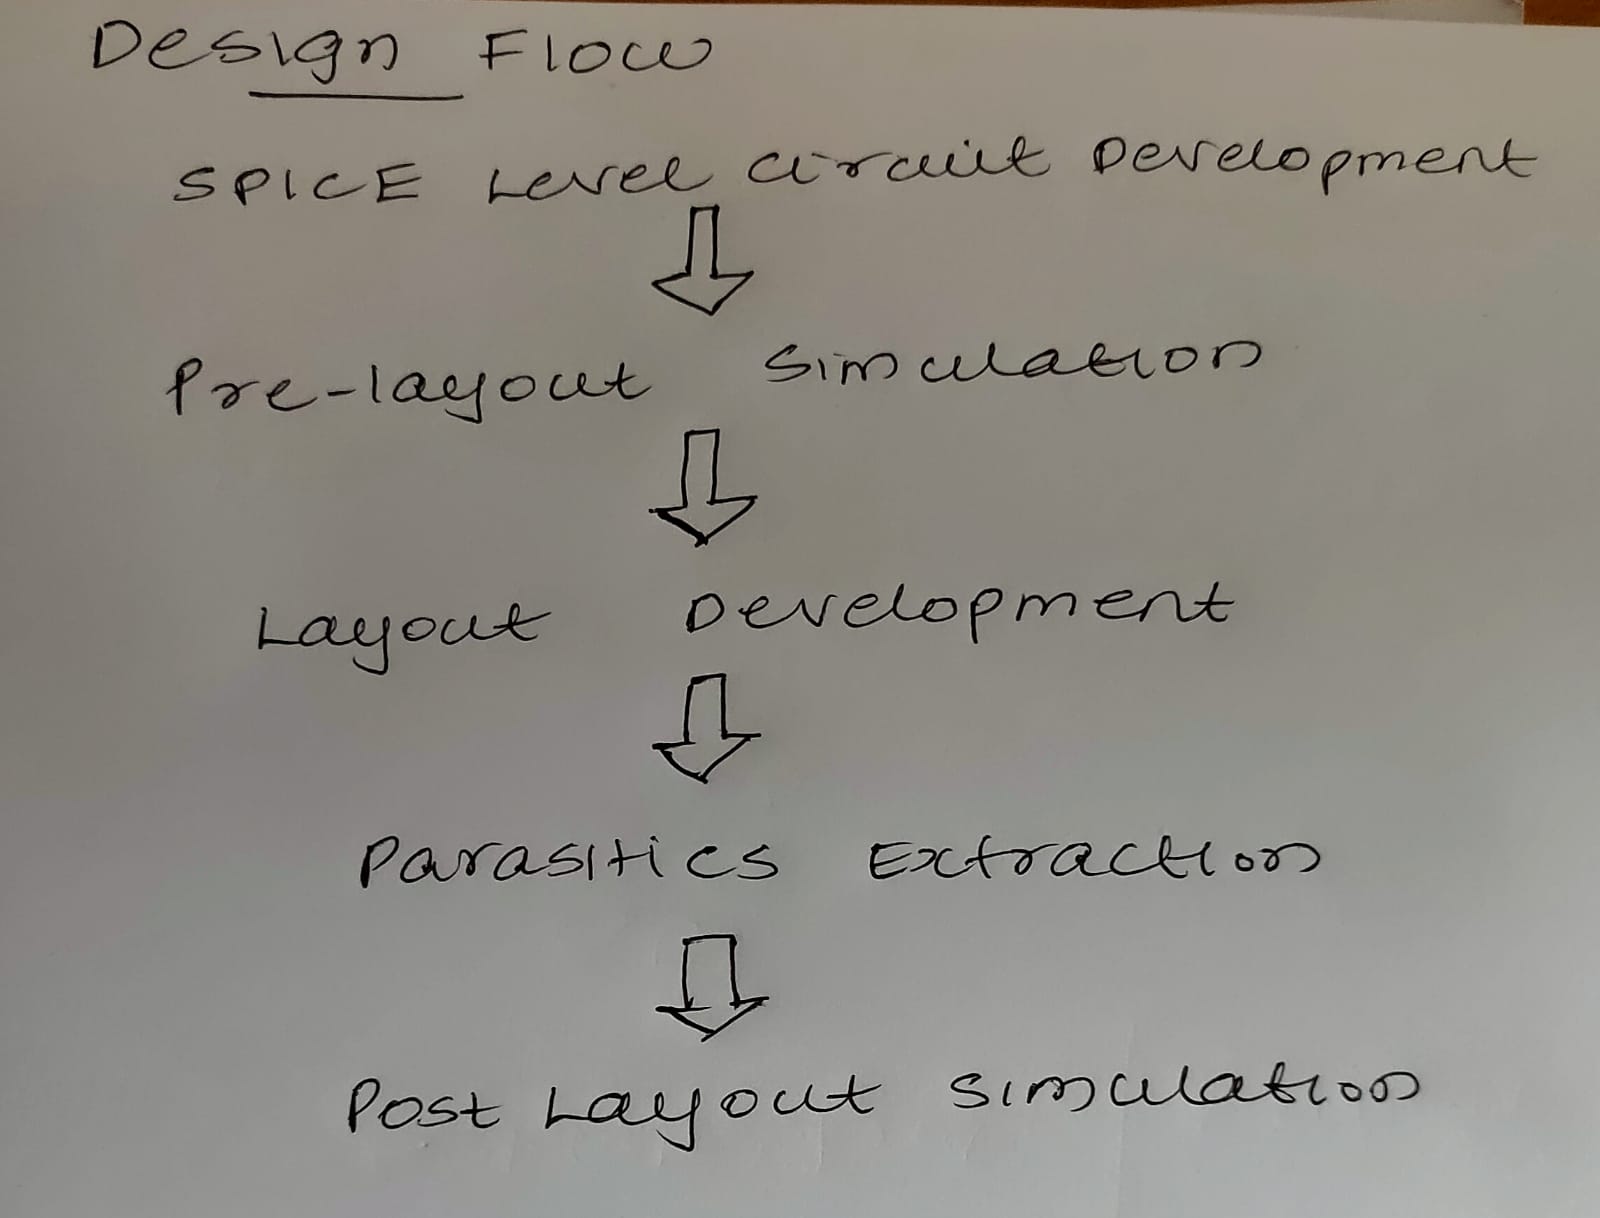 Design Flow
SPICE Level Circuit Development
Pre-layout Simulation
Layout Development
Parasitics Extraction
Post Layout Simulation